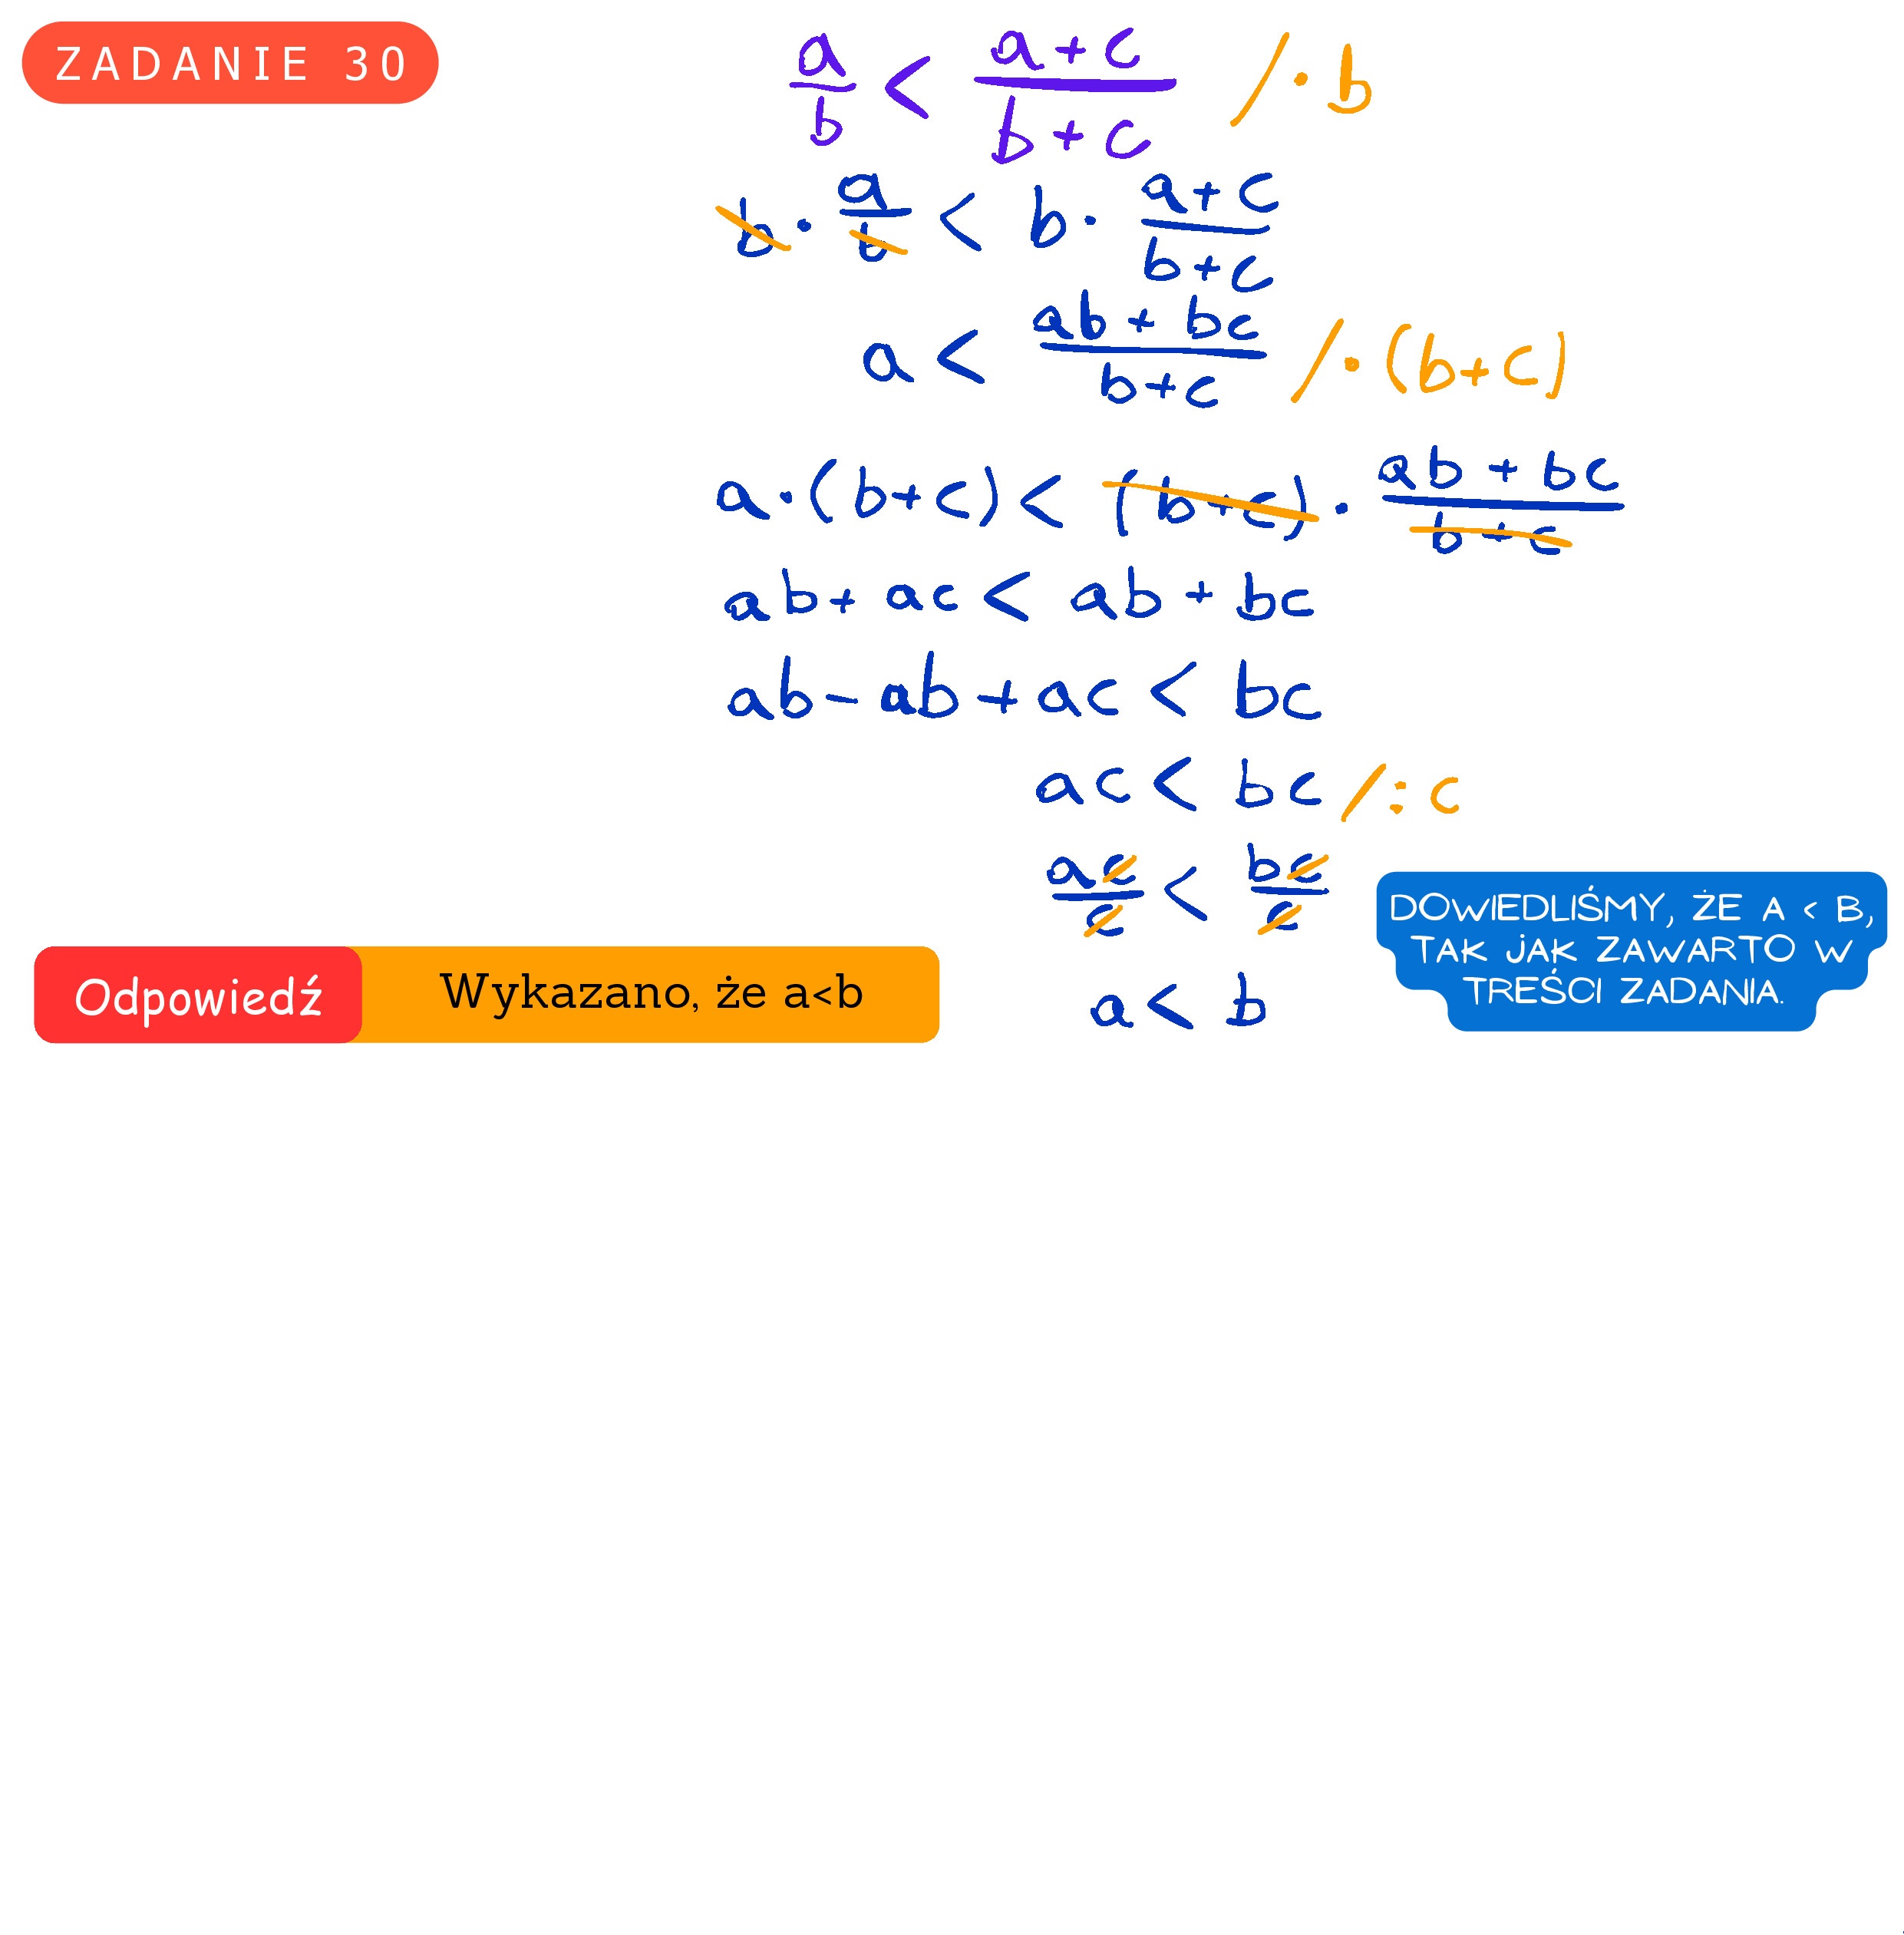 ZADANIE 30
a/b < (a+c)/(b+c) /·b
b · a/b < b · (a+c)/(b+c)
a < (ab+bc)/(b+c) /·(b+c)
a·(b+c) < (b+c) · (ab+bc)/(b+c)
ab+ac < ab+bc
ab-ab+ac < bc
ac < bc /:c
ac/c < bc/c
a < b
DOWIEDLIŚMY, ŻE A < B,
TAK JAK ZAWARTO W
TREŚCI ZADANIA.
Odpowiedź Wykazano, że a<b